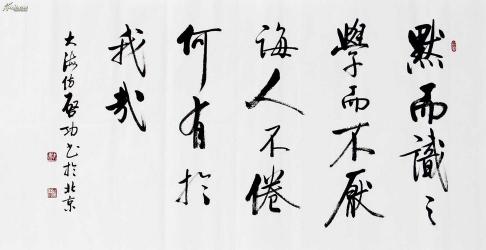 默而識之
學而不厭
誨人不倦
何有於
我哉
大海仿啓功書於北京